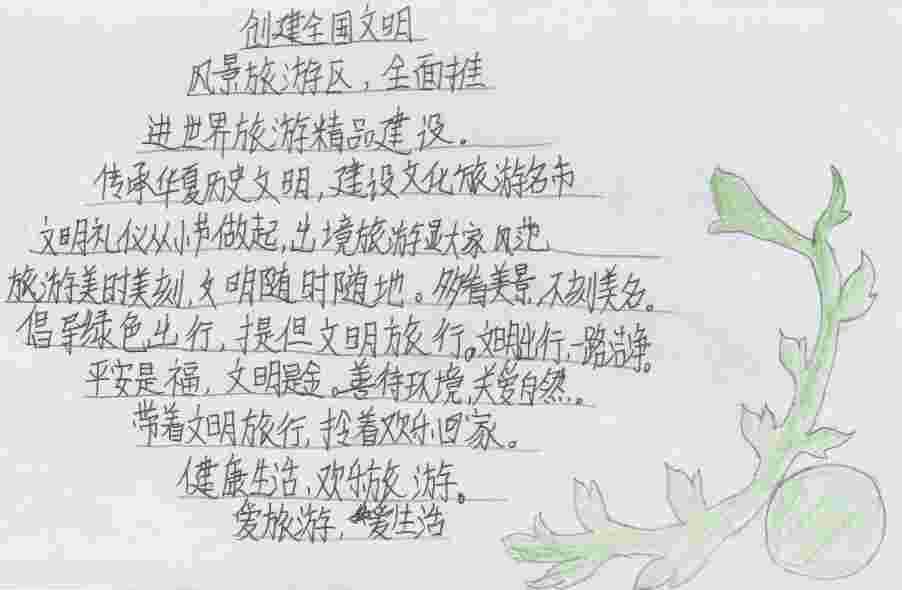 创建全国文明
风景旅游区，全面推
进世界旅游精品建设。
传承华夏历史文明，建设文化旅游名市
文明礼仪从小节做起，出境旅游显大家风范
旅游美时美刻，文明随时随地。多看美景，不刻美名。
倡导绿色出行，提但文明旅行。文明出行，一路洁净。
平安是福，文明是金。善待环境，关爱自然。
带着文明旅行，拴着欢乐回家。
健康生活，欢乐旅游。
爱旅游，爱生活